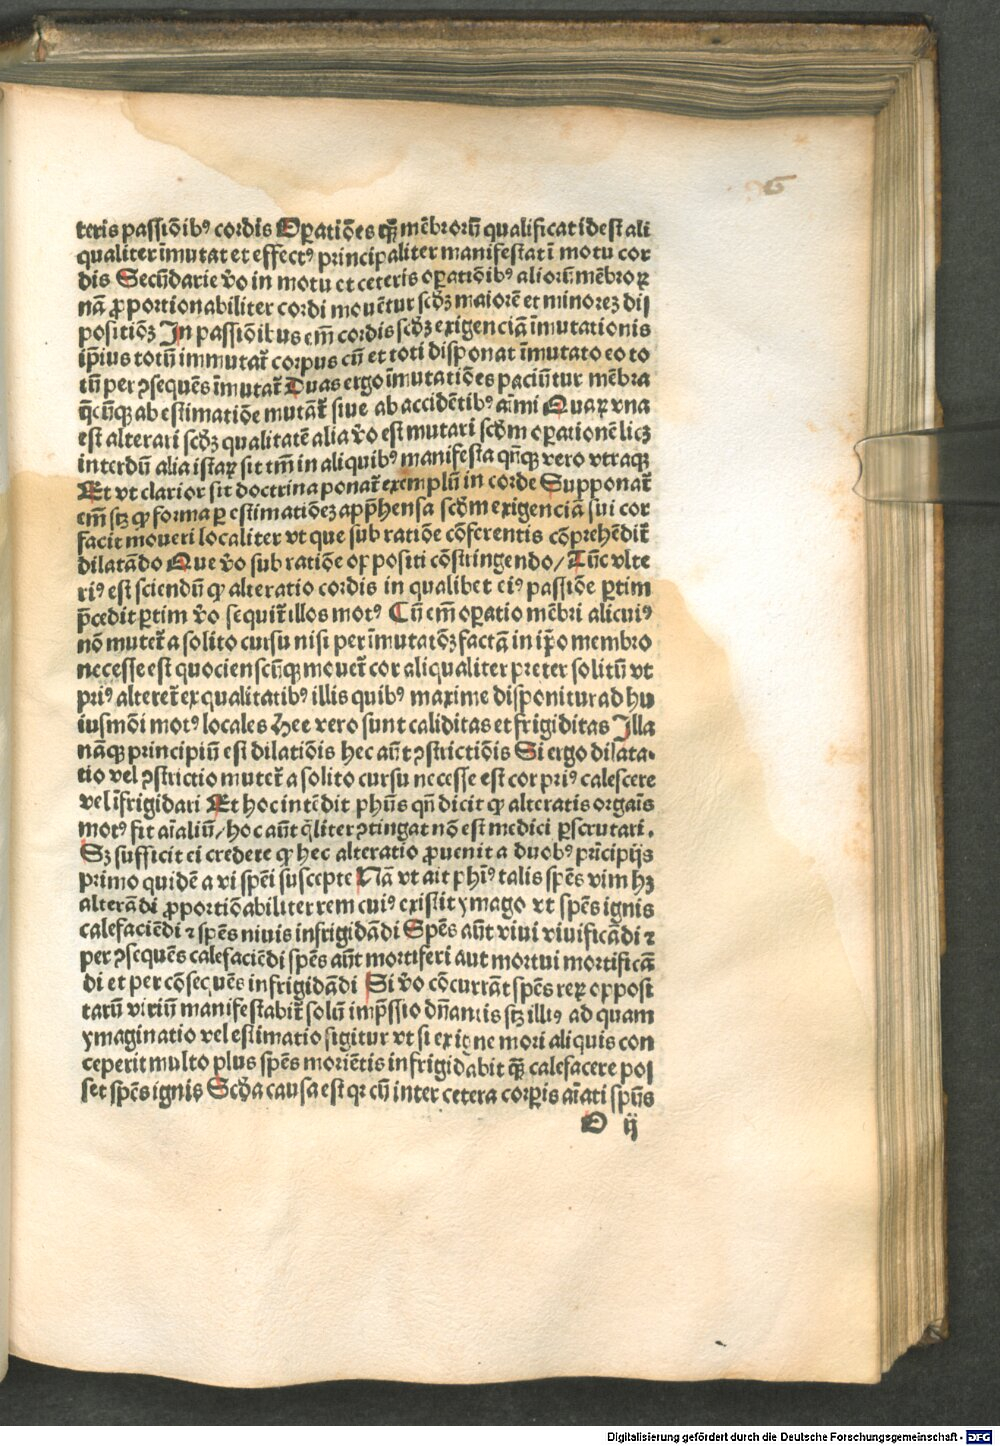 6
teris passiōibꝰ cordis Oꝑatiōes qꝫ mēbrorū qualificat idest ali
qualiter īmutat et effectꝰ principaliter manifestat ī motu cor
dis Secūdarie v̄o in motu et ceteris oꝑatiōibꝰ aliorū mēbroꝝ
nā ꝓportionabiliter cordi mouētur scd̄ꝫ maiorē et minoreꝫ dis
positiōꝫ In passiōibus em̄ cordis scd̄ꝫ exigenciā īmutationis
ip̄ius totū immutat᷑ corpus cū et toti disponat īmutato eo to
tū per ꝯsequēs īmutat᷑ Duas ergo īmutatiōes paciūtur mēbra
q̄cūqꝫ ab estimatiōe mutāt᷑ siue ab accidētibꝰ aīmi Quaꝝ vna
est alterari scd̄ꝫ qualitatē alia v̄o est mutari scd̄m oꝑationē licꝫ
interdū alia istaꝝ sit tm̄ in aliquibꝰ manifesta qn̄qꝫ vero vtraqꝫ
Et vt clarior sit doctrina ponat᷑ exemplū in corde Supponat᷑
em̄ sꝫ ꝙ forma ꝑ estimatiōeꝫ app̄hensa scd̄m exigenciā sui cor
facit moueri localiter vt que sub ratiōe cōferentis cōprehēdit᷑
dilatādo Que v̄o sub ratiōe oppositi cōstringendo / Tūc vlte
riꝰ est sciendū ꝙ alteratio cordis in qualibet eiꝰ passiōe ꝑtim
p̄cedit ꝑtim v̄o sequit᷑ illos motꝰ Cū em̄ oꝑatio mēbri alicuiꝰ
nō mutet᷑ a solito cursu nisi per īmutatōꝫ factā in ip̄o membro
necesse est quociescūqꝫ mouet᷑ cor aliqualiter preter solitū vt
priꝰ alteret᷑ ex qualitatibꝰ illis quibꝰ maxime disponitur ad hu
iusmōi motꝰ locales Hee vero sunt caliditas et frigiditas Illa
nāqꝫ principiū est dilatiōis hec aūt ꝯstrictiōis Si ergo dilata-
tio vel ꝯstrictio mutet᷑ a solito cursu necesse est cor priꝰ calescere
vel īfrigidari Et hoc intēdit ph̄us qn̄ dicit ꝙ alteratis orgaīs
motꝰ fit aīaliū / hoc aūt q̄liter ꝯtingat nō est medici ꝑscrutari.
Sꝫ sufficit ei credere ꝙ hec alteratio ꝓuenit a duobꝰ prīcipijs
primo quidē a vi spēi suscepte Nā vt ait phīꝰ talis spēs vim hꝫ
alterādi ꝓportiōabiliter rem cuiꝰ existit ymago vt spēs ignis
calefaciēdi ⁊ spēs niuis infrigidādi Spēs aūt viui viuificādi ⁊
per ꝯsequēs calefaciēdi spēs aūt mortiferi aut mortui mortificā
di et per cōsequēs infrigidādi Si v̄o cōcurrāt spēs reꝝ opposi
tarū viriū manifestabit᷑ solū imp̄ssio dn̄antis sꝫ illiꝰ ad quam
ymaginatio vel estimatio figitur vt si ex igne mori aliquis con
ceperit multo plus spēs moriētis infrigidabit qꝫ calefacere pos
set spēs ignis Scd̄a causa est qꝛ cū inter cetera corꝑis aīati spūs
O ij
Digitalisierung gefördert durch die Deutsche Forschungsgemeinschaft - DFG